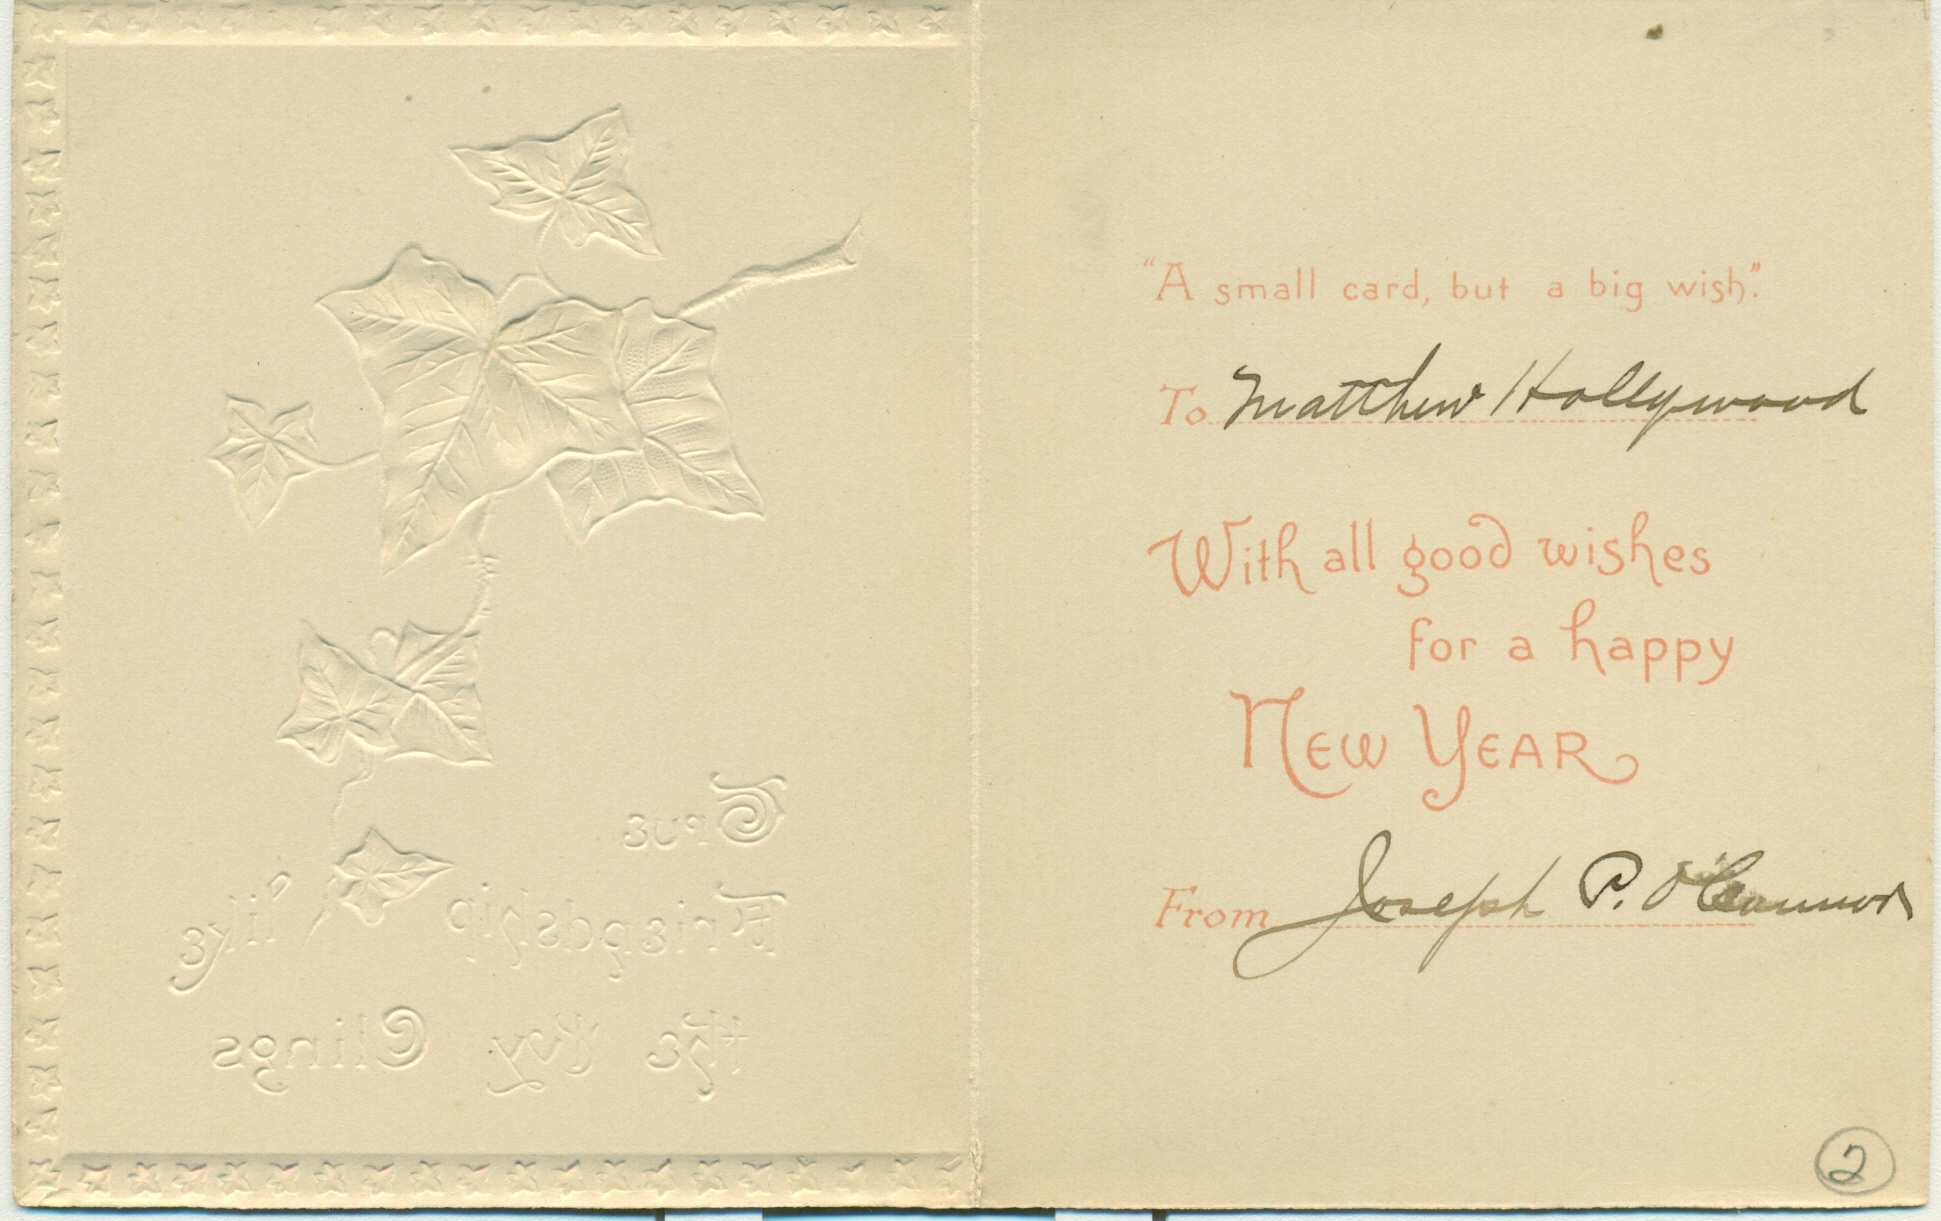 True
Friendship like
the Ivy Clings
“A small card, but a big wish”.
To Matthew Hollywood
With all good wishes
for a happy
NEW YEAR
From Joseph P. O'Connor
2